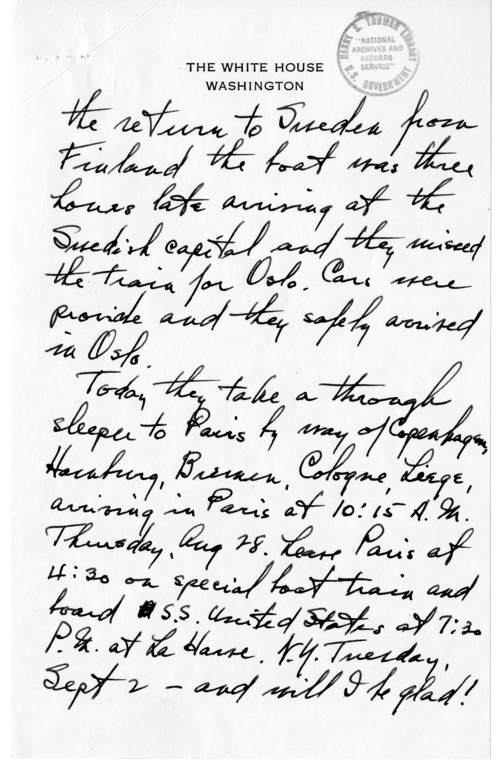 THE WHITE HOUSE
WASHINGTON
HARRY S. TRUMAN LIBRARY
"NATIONAL
ARCHIVES AND
RECORDS
SERVICE"
U.S. GOVERNMENT
the return to Sweden from
Finland the boat was three
hours late arriving at the
Swedish capital and they missed
the train for Oslo. Cars were
provide and they safely arrived
in Oslo.
Today they take a through
sleeper to Paris by way of Copenhagen,
Hamburg, Bremen, Cologne, Liege,
arriving in Paris at 10:15 A.M.
Thursday, Aug 28. Leave Paris at
4:30 on special boat train and
board S.S. United States at 7:30
P.M. at La Havre. N.Y. Tuesday,
Sept 2 – and will I be glad!